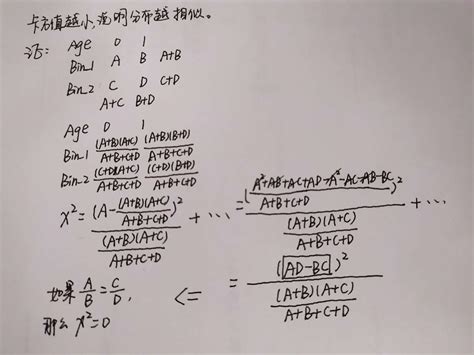 卡方值越小,说明分布越相似。
证: Age 0 1
Bin_1 A B A+B
Bin_2 C D C+D
A+C B+D
Age 0 1
Bin_1 (A+B)(A+C)/(A+B+C+D) (A+B)(B+D)/(A+B+C+D)
Bin_2 (C+D)(A+C)/(A+B+C+D) (C+D)(B+D)/(A+B+C+D)
x² = (A - (A+B)(A+C)/(A+B+C+D))² / ((A+B)(A+C)/(A+B+C+D)) + ⋯ = ((A²+AB+AC+AD-A²-AC-AB-BC)/(A+B+C+D))² / ((A+B)(A+C)/(A+B+C+D)) + ⋯
= (AD-BC)² / ((A+B)(A+C)/(A+B+C+D))
如果 A/B = C/D, <=
那么 x²=0